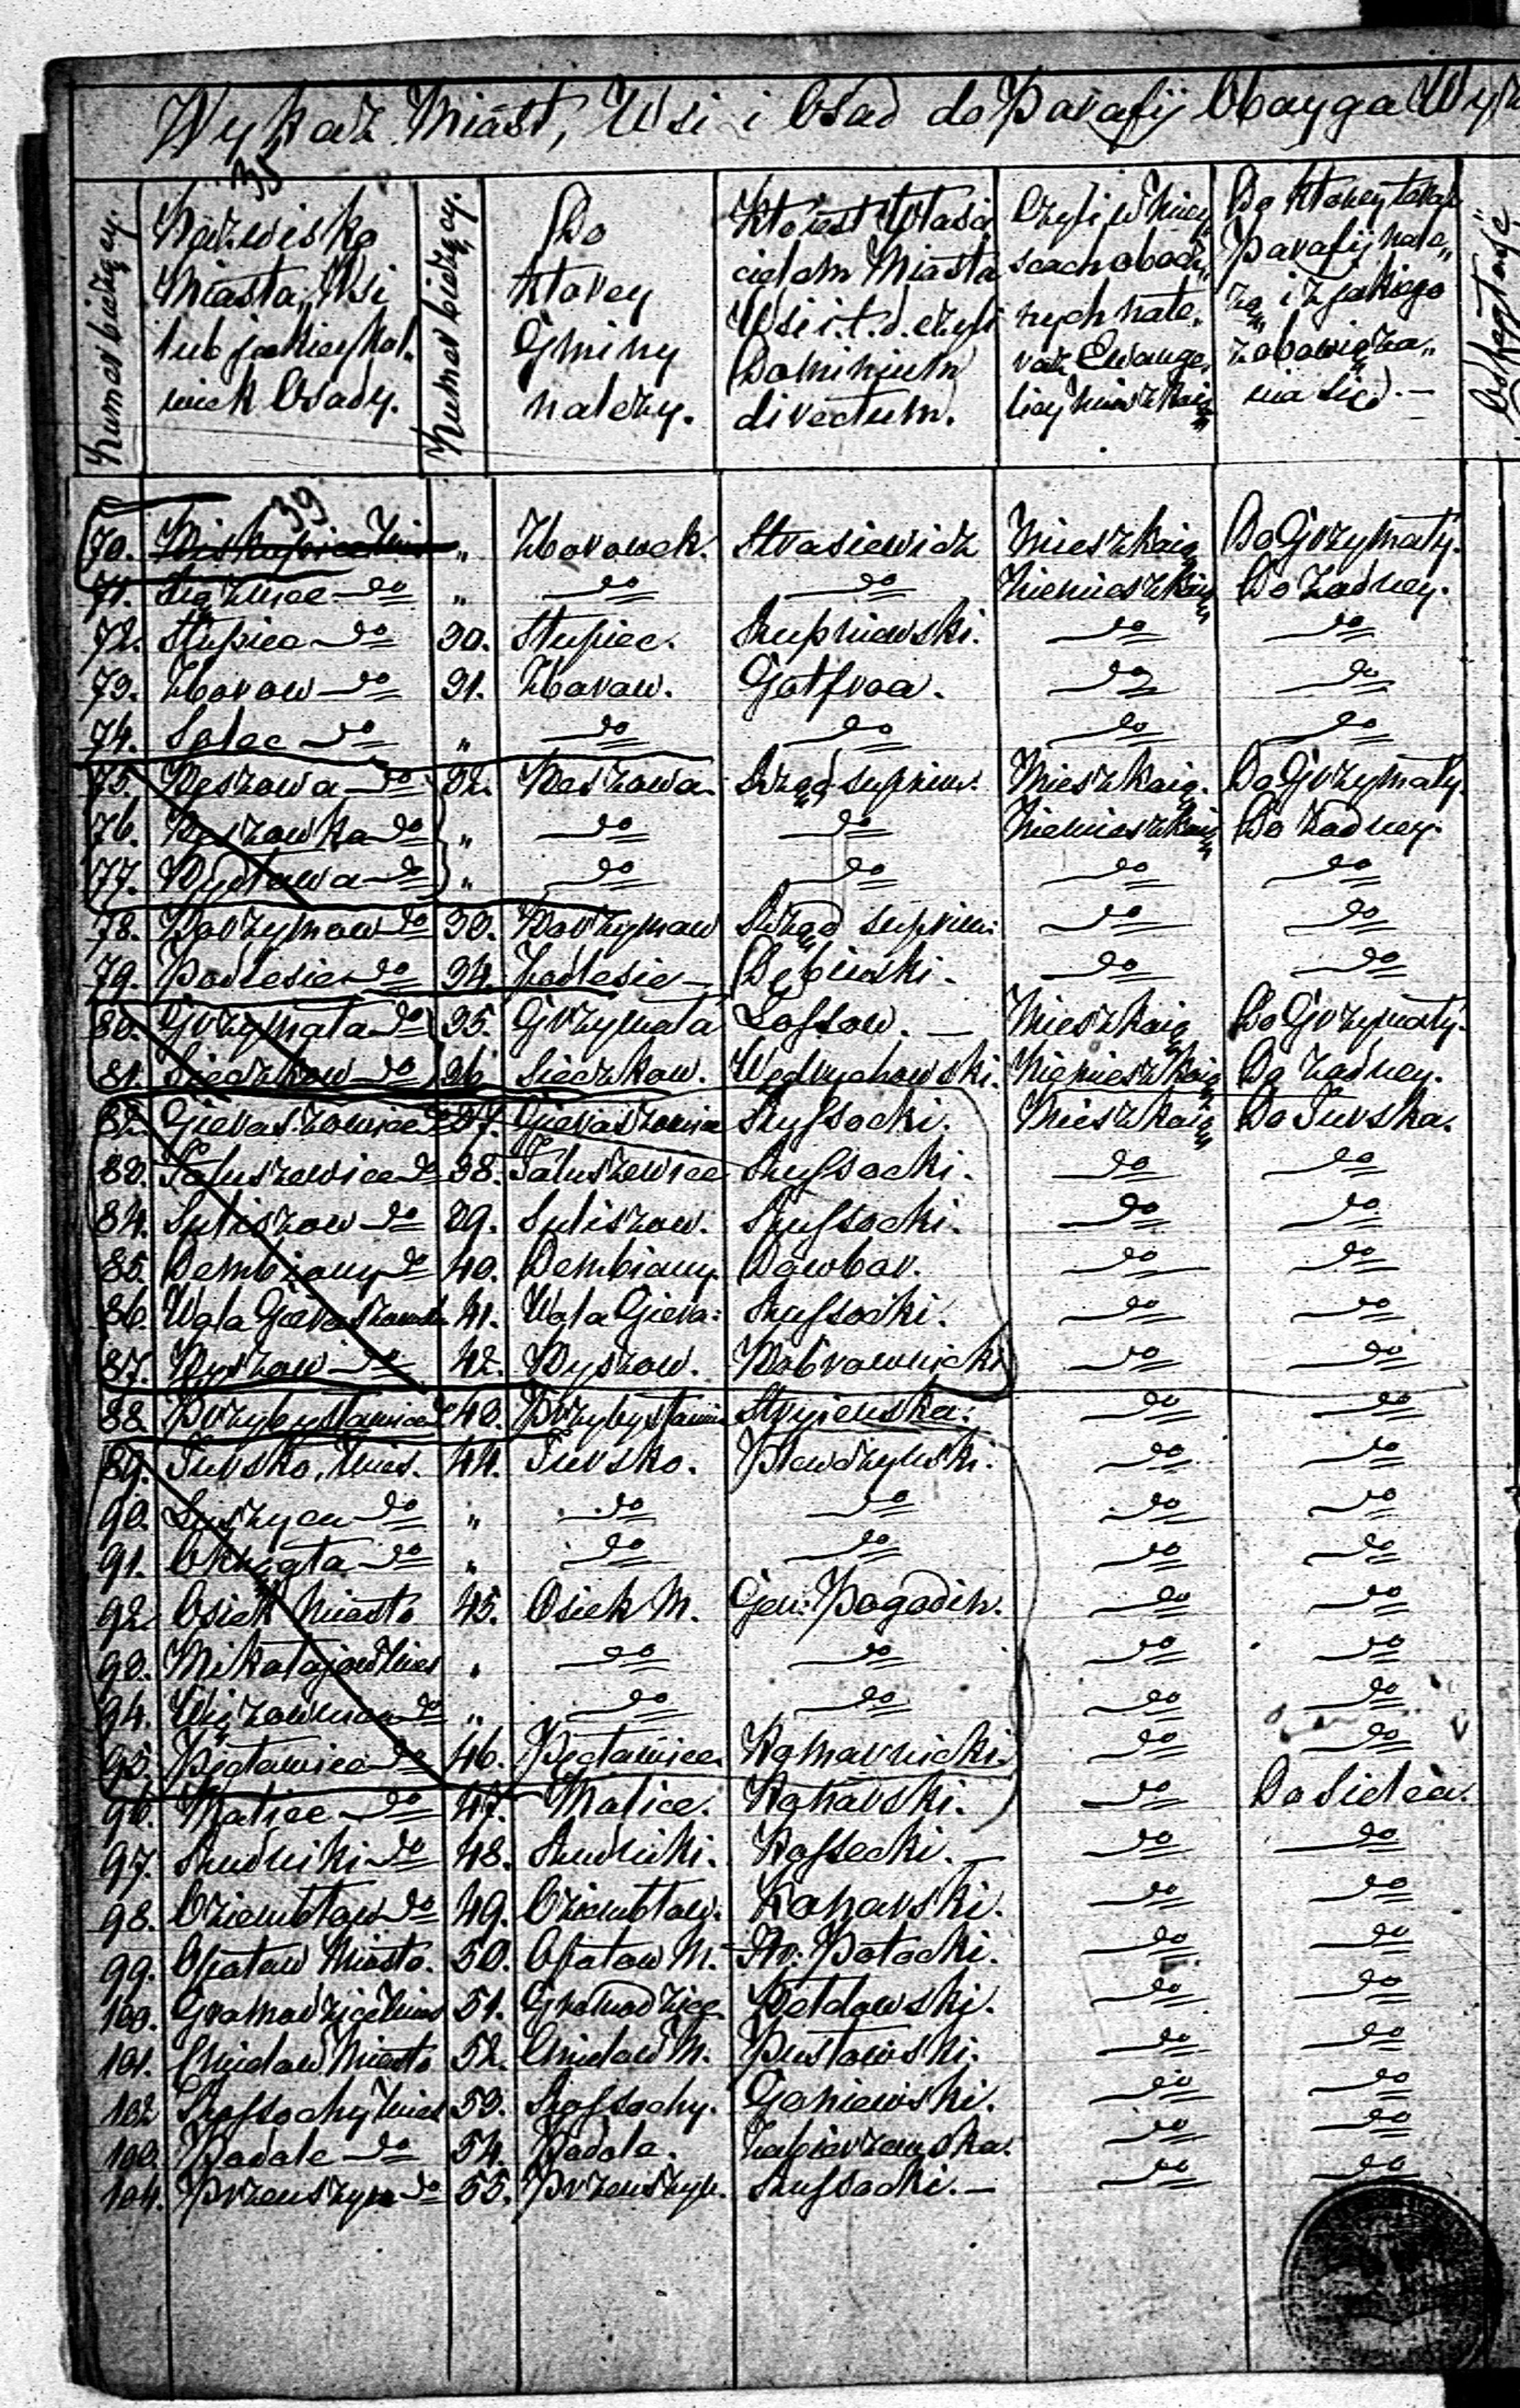 Wykaz Miast, Wsi i Osad do Parafij Oboyga Wyz
35
Numer bieżący.
Nazwisko
Miasta, Wsi
lub jakieykol-
wiek Osady.
Numer bieżący.
Do
Ktorey
Gminy
należy.
Kto iest Właści
cielem Miasta
Wsi i.t.d. czyli
Dominium
directum.
Czyli w Miey
scach obocz
nych nale-
Ewange-
licy mieszkaią
Do Ktorey
Parafij nale-
żą i z jakiego
zobowiąza-
nia się. —
39
70. " Zborowek. Strasiewicz Mieszkaią Do Grzymały.
71. do " do do Niemieszkaią Do Żadney.
72. Słupiec do 30. Słupiec. Skupniewski. do do
73. Zborow do 31. Zborow. Gotfroa. do do
74. Solec do " do do do do
75. Beszowa do 32. Beszowa. Rząd supriem. Mieszkaią. Do Grzymały.
76. Beszowka do " do do Niemieszkaią Do Żadney.
77. Wydłowa do " do do do do
78. Borzymow do 33. Borzymow Rząd supriem: do do
79. Podlesie do 34. Podlesie — Dębinski. do do
80. Grzymała do 35. Grzymała Lossow. — Mieszkaią Do Grzymały.
81. Sieczkow do 36 Sieczkow. Wędrychowski. Niemieszkaią Do Żadney.
82. Gieraszowice do 37. Gieraszowice Russocki. Mieszkaią Do Turska.
83. Tałuszowice do 38. Tałuszowice Russocki. do do
84. Suliszow do 39. Suliszow. Russocki. do do
85. Dembiany do 40. Dembiany. Dowbor. do do
86. Wola Gieraszowska 41. Wola Giera: Russocki. do do
87. Byszow do 42. Byszow. Bobrownicki do do
88. Przybysławice do 43. Przybysławice Stryienska: do do
89. Tursko, Wies. 44. Tursko. do do
90. Luszyca do " do do do do
91. Okrągła do " do do do do
92. Osiek Miasto 45. Osiek M. Gen: Pogodin. do do
93. Mikołajow Wies " do do do do
94. Wiązownia do " do do do do
95. Pęcławice do 46. Pęcławice. Komornicki. do do
96. Malice do 47. Malice. Konarski. do Do Sielca.
97. Rudniki do 48. Rudniki. Kossecki. — do do
98. Oziembłow do 49. Oziembłow. Konarski. do do
99. Opatow Miasto. 50. Opatow M. Hr: Potocki. do do
100. Gromadzice Wies 51. Gromadzice. do do
101. Cmielow Miasto 52. Cmielow M. Pusłowski. do do
102 Rossochy Wies 53. Rossochy. Goniewski. do do
103. Podole do 54. Podole. do do
104. Przeuszyn do 55. Przeuszyn. Russocki. — do do